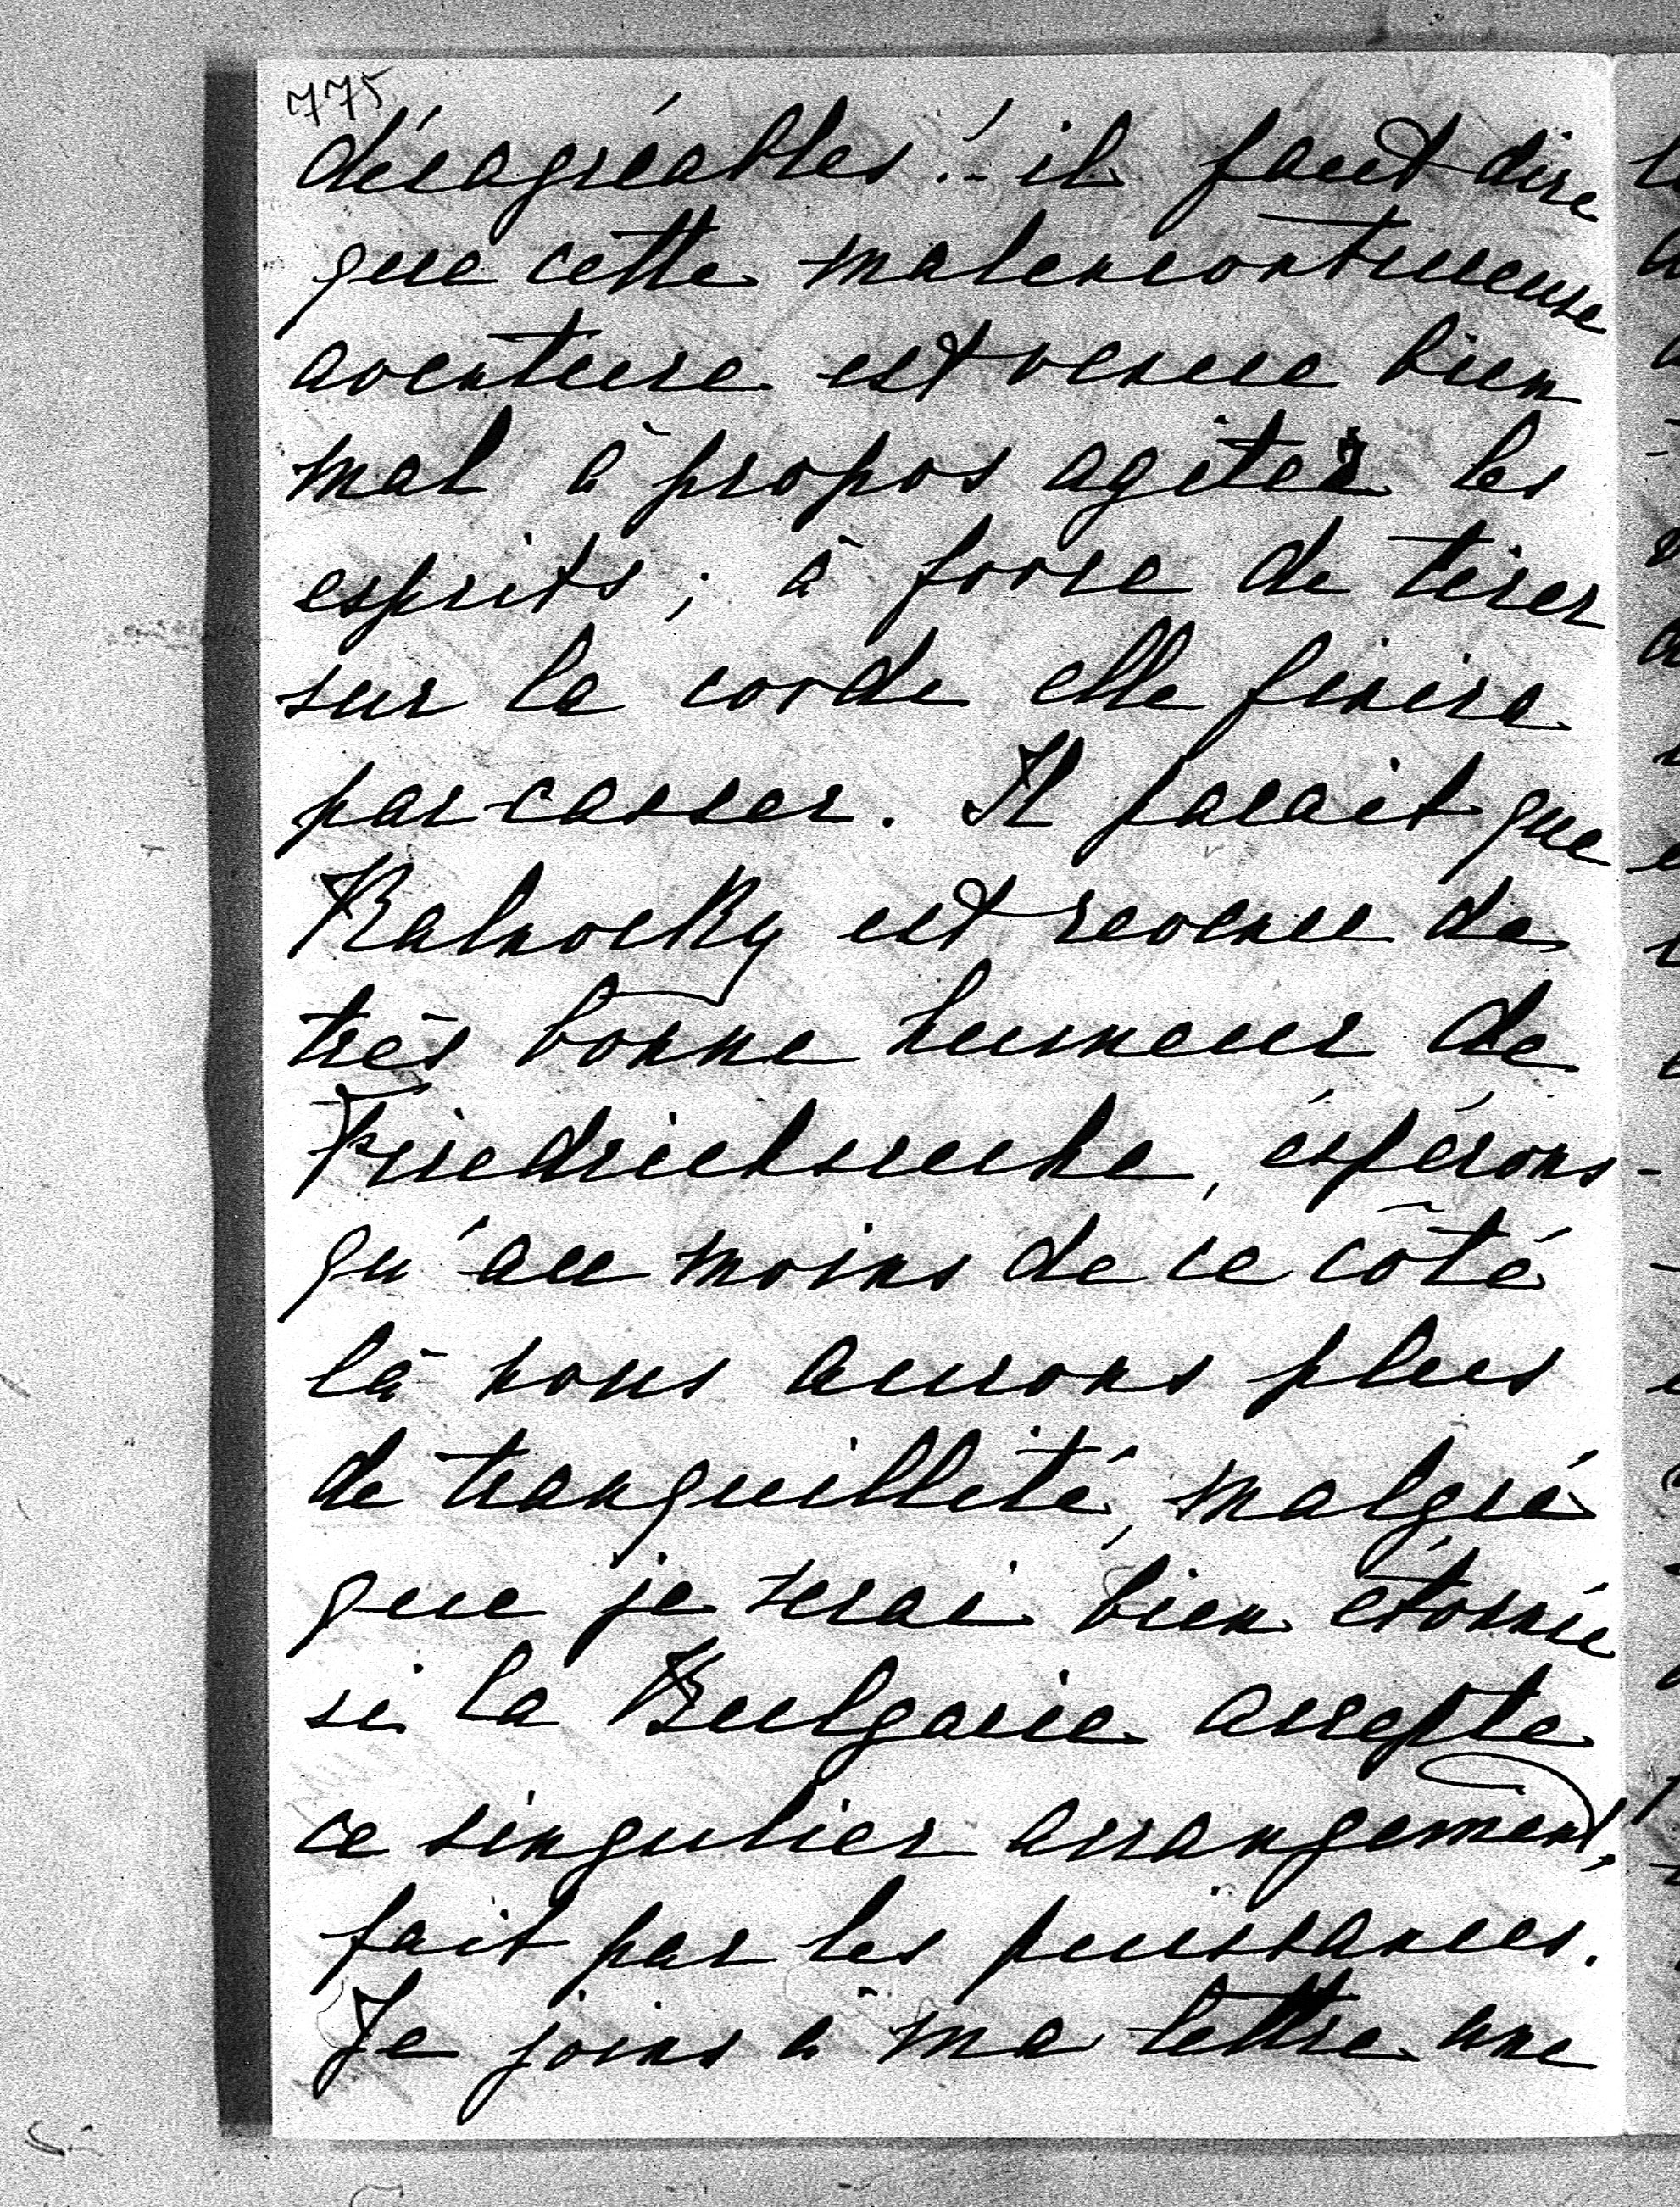 775
désagréables!- il faut dire
que cette malencontrueuse
aventure est venue bien
mal à propos agiter les
esprits; à force de tirer
sur la corde elle finira
par casser. Il parait que
Kalnocky est revenu de
très bonne humeur de
Friedrichsruhe, éspérons-
qu'au moins de ce côté
là nous aurons plus
de tranquillité, malgré
que je serai bien étonnée
si la Bulgarie accepte
ce singulier arrangement,
fait par les puissances.
Je joins à ma lettre une